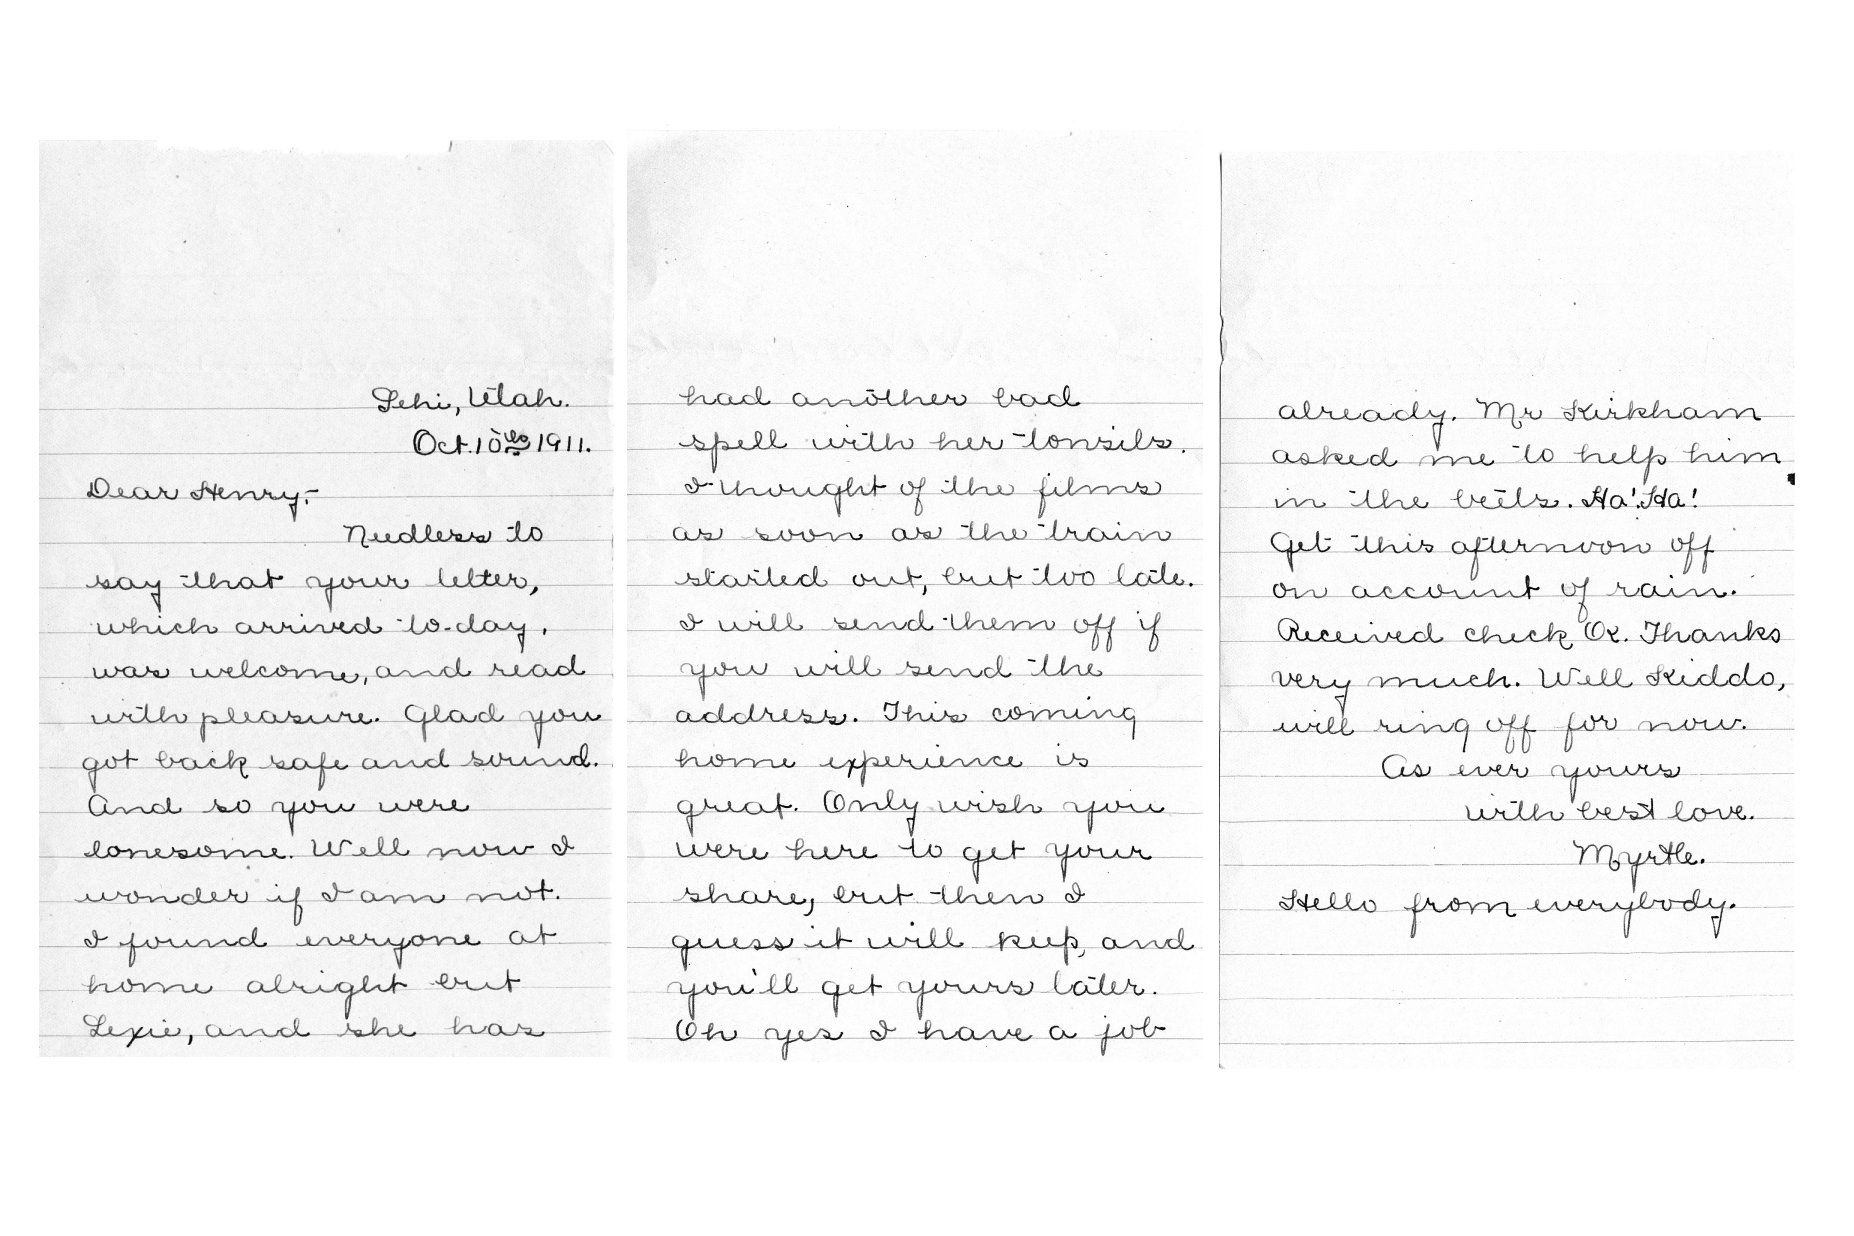 Lehi, Utah.
Oct. 10th 1911.
Dear Henry;-
Needless to
say that your letter,
which arrived to-day,
was welcome, and read
with pleasure. Glad you
got back safe and sound.
And so you were
lonesome. Well now I
wonder if I am not.
I found everyone at
home alright but
Lexie, and she has
had another bad
spell with her tonsils.
I thought of the films
as soon as the train
started out, but too late.
I will send them off if
you will send the
address. This coming
home experience is
great. Only wish you
were here to get your
share, but then I
guess it will keep, and
you'll get yours later.
Oh yes I have a job
already. Mr Kirkham
asked me to help him
in the beets. Ha! Ha!
Get this afternoon off
on account of rain.
Received check, OK. Thanks
very much. Well Kiddo,
will ring off for now.
As ever yours
with best love.
Myrtle.
Hello from everybody.